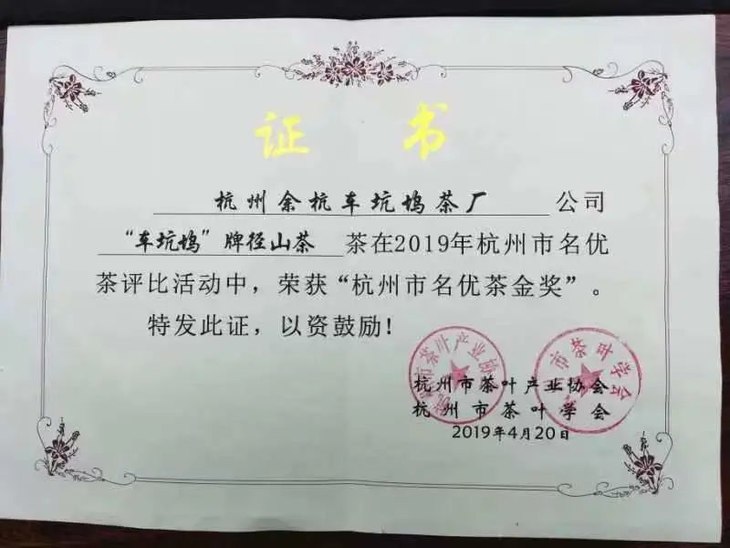 证 书
杭州余杭车坑坞茶厂 公司
“车坑坞”牌径山茶 茶在2019年杭州市名优
茶评比活动中，荣获“杭州市名优茶金奖”。
特发此证，以资鼓励！
杭州市茶叶产业协会
杭州市茶叶学会
杭州市茶叶产业协会
杭州市茶叶学会
2019年4月20日